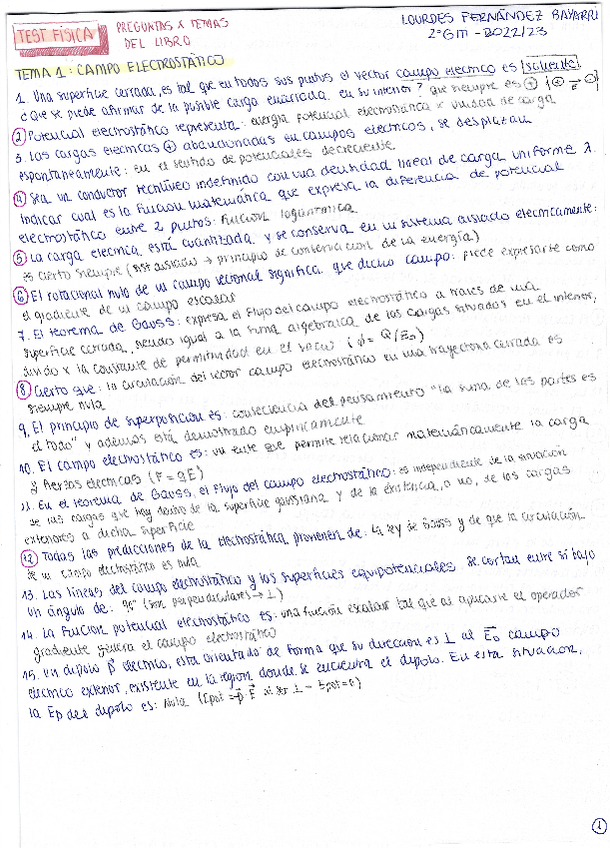 TEST FÍSICA
PREGUNTAS X TEMAS
DEL LIBRO
LOURDES FERNÁNDEZ BAYARRI
2º GITI - 2022/23
TEMA 1: CAMPO ELECTROSTÁTICO
1. Una superficie cerrada, es tal que en todos sus puntos el vector campo electrico es saliente.
¿Que se puede afirmar de la posible carga encerrada en su interior? que siempre es +
2 Potencial electrostático representa: energía potencial electrostática x unidad de carga
3. Las cargas electricas + abandonadas en campos electricos, se desplazan
espontaneamente: en el sentido de potenciales decreciente
4 Sea un conductor rectilineo indefinido con una densidad lineal de carga uniforme λ.
Indicar cual es la funcion matemática que expresa la diferencia de potencial
electrostático entre 2 puntos: funcion logaritmica
5 La carga electrica está cuantizada y se conserva en un sistema aislado electricamente:
es cierto siempre (sist aislado → principio de conservacion de la energía)
6 El rotacional nulo de un campo vectorial significa que dicho campo: puede expresarte como
el gradiente de un campo escalar
7. El teorema de Gauss: expresa el flujo del campo electrostático a traves de una
superficie cerrada, siendo igual a la suma algebraica de las cargas situadas en el interior,
divido x la constante de permitividad en el vacio (ϕ = Q/ε₀)
8 Cierto que: la circulación del vector campo electrostático en una trayectoria cerrada es
siempre nula
9. El principio de superposicion es: consecuencia del pensamiento "la suma de las partes es
el todo" y ademas está demostrado empiricamente
10. El campo electrostático es: un ente que permite relacionar matemáticamente la carga
y fuerzas electricas (F = qE)
11. En el teorema de Gauss, el flujo del campo electrostático: es independiente de la situación
de las cargas que hay dentro de la superficie gaussiana y de la existencia, o no, de las cargas
exteriores a dicha superficie
12 Todas las predicciones de la electrostática provienen de: la ley de Gauss y de que la circulación
de un campo electrostático es nula
13. Las lineas del campo electrostático y las superficies equipotenciales se cortan entre si bajo
un ángulo de: 90° (son perpendiculares → ⊥)
14. La funcion potencial electrostático es: una función escalar tal que al aplicarle el operador
gradiente genera el campo electrostático
15. Un dipolo p⃗ electrico, esta orientado de forma que su direccion es ⊥ al E⃗₀ campo
electrico exterior, existente en la region donde se encuentra el dipolo. En esta situacion,
la Ep del dipolo es: Nula (Epot = -p⃗ · E⃗ al ser ⊥ - Epot = 0)
1